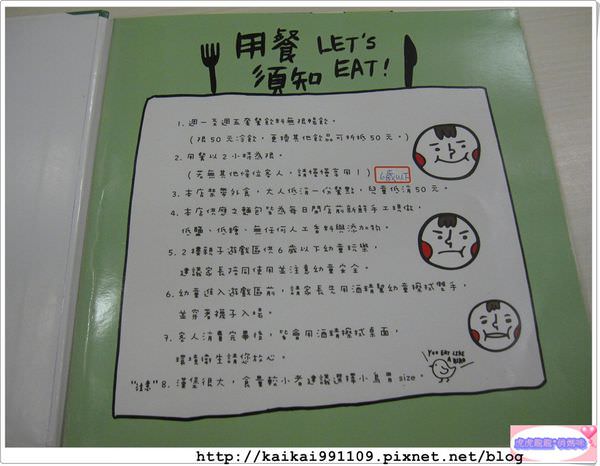 用餐 LET'S
須知 EAT!
1. 週一至週五套餐飲料無限暢飲。
(限50元冷飲，更換其他飲品可折抵50元。)
2. 用餐以2小時為限。
(若無其他候位客人，請慢慢享用!) 6歲以下
3. 本店禁帶外食，大人低消一份餐點，兒童低消50元。
4. 本店供應之麵包皆為每日開店前新鮮手工現做，
低鹽、低糖、無任何人工香料與添加物。
5. 2樓親子遊戲區供6歲以下幼童玩樂，
建議家長陪同使用並注意幼童安全。
6. 幼童進入遊戲區前，請家長先用酒精幫幼童擦拭雙手，
並穿著襪子入場。
7. 客人消費完畢後，皆會用酒精擦拭桌面，
環境衛生請您放心。
YOU EAT LIKE
A BIRD
"注意" 8. 漢堡很大，食量較小者建議選擇小鳥胃size。
虎虎龍龍·俏媽咪
http://kaikai991109.pixnet.net/blog